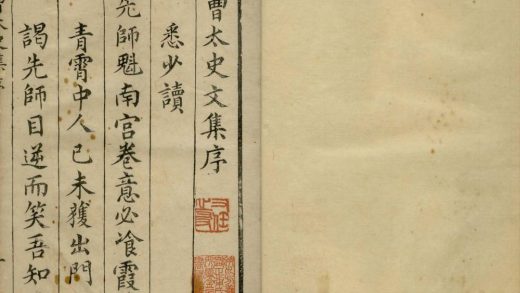 曹太史文集序
悉少讀
先師魁南宫卷意必飡霞
青霄中人己未獲出門
謁先師目逆而笑吾知